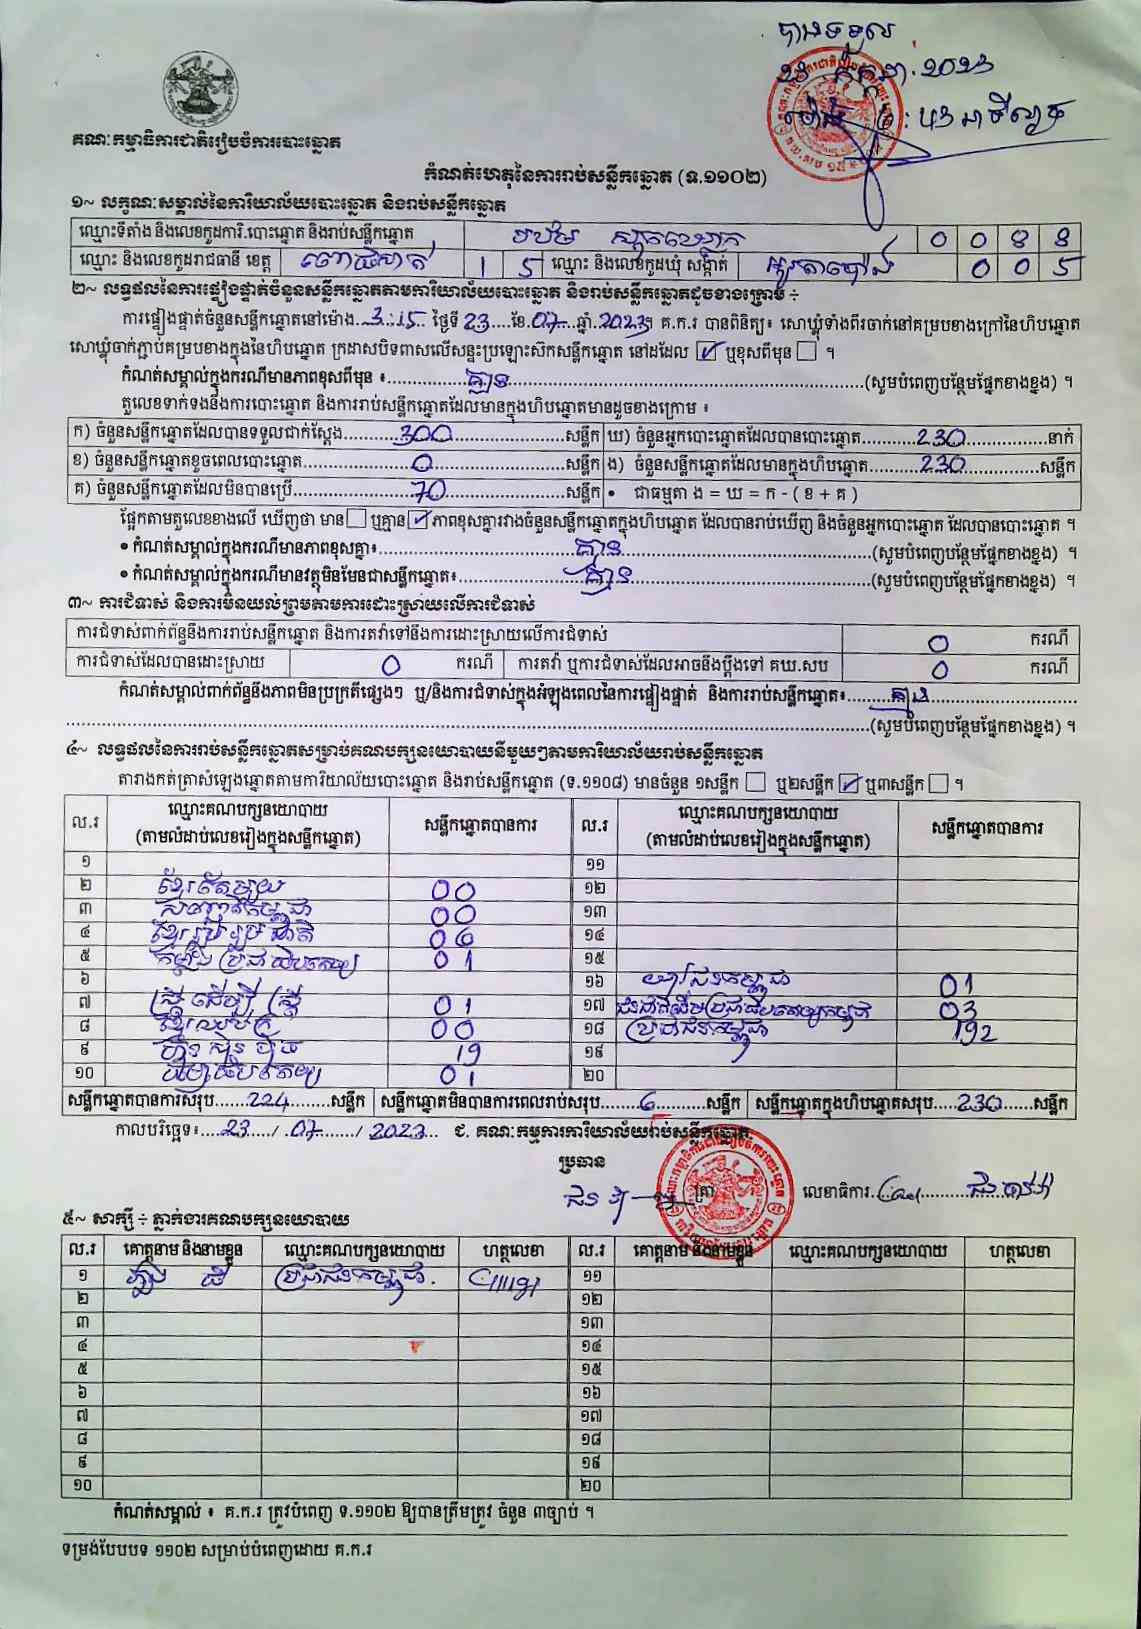 បានទទួល
២៣ កក្កដា ២០២៣
គណៈកម្មាធិការជាតិរៀបចំការបោះឆ្នោត
កំណត់ហេតុនៃការរាប់សន្លឹកឆ្នោត (ទ.១១០២)
១~ លក្ខណៈសម្គាល់នៃការិយាល័យបោះឆ្នោត និងរាប់សន្លឹកឆ្នោត
ឈ្មោះទីតាំង និងលេខកូដការិ.បោះឆ្នោត និងរាប់សន្លឹកឆ្នោត 0 0
ឈ្មោះ និងលេខកូដរាជធានី ខេត្ត ពោធិ៍សាត់ 1 5 ឈ្មោះ និងលេខកូដឃុំ សង្កាត់ អូរតាប៉ោង 0 0 5
២~ លទ្ធផលនៃការផ្ទៀងផ្ទាត់ចំនួនសន្លឹកឆ្នោតតាមការិយាល័យបោះឆ្នោត និងរាប់សន្លឹកឆ្នោតដូចខាងក្រោម ÷
ការផ្ទៀងផ្ទាត់ចំនួនសន្លឹកឆ្នោតនៅម៉ោង..3:15.. ថ្ងៃទី 23....ខែ.07....ឆ្នាំ.2023។ គ.ក.រ បានពិនិត្យ៖ សោឃ្លុំទាំងពីរចាក់នៅគម្របខាងក្រៅនៃហិបឆ្នោត
សោឃ្លុំចាក់ភ្ជាប់គម្របខាងក្នុងនៃហិបឆ្នោត ក្រដាសបិទពាសលើសន្ទះប្រឡោះស៊កសន្លឹកឆ្នោត នៅដដែល ☑ ឬខុសពីមុន ☐ ។
កំណត់សម្គាល់ក្នុងករណីមានភាពខុសពីមុន ៖.......គ្មាន.......(សូមបំពេញបន្ថែមផ្នែកខាងខ្នង) ។
តួលេខទាក់ទងនឹងការបោះឆ្នោត និងការរាប់សន្លឹកឆ្នោតដែលមានក្នុងហិបឆ្នោតមានដូចខាងក្រោម ៖
ក) ចំនួនសន្លឹកឆ្នោតដែលបានទទួលជាក់ស្តែង.......300.......សន្លឹក ឃ) ចំនួនអ្នកបោះឆ្នោតដែលបានបោះឆ្នោត.......230.......នាក់
ខ) ចំនួនសន្លឹកឆ្នោតខូចពេលបោះឆ្នោត.......0.......សន្លឹក ង) ចំនួនសន្លឹកឆ្នោតដែលមានក្នុងហិបឆ្នោត.......230.......សន្លឹក
គ) ចំនួនសន្លឹកឆ្នោតដែលមិនបានប្រើ.......70.......សន្លឹក • ជាធម្មតា ង = ឃ = ក - ( ខ + គ )
ផ្អែកតាមតួលេខខាងលើ ឃើញថា មាន ☐ ឬគ្មាន ☑ ភាពខុសគ្នារវាងចំនួនសន្លឹកឆ្នោតក្នុងហិបឆ្នោត ដែលបានរាប់ឃើញ និងចំនួនអ្នកបោះឆ្នោត ដែលបានបោះឆ្នោត ។
• កំណត់សម្គាល់ក្នុងករណីមានភាពខុសគ្នា៖.......គ្មាន.......(សូមបំពេញបន្ថែមផ្នែកខាងខ្នង) ។
• កំណត់សម្គាល់ក្នុងករណីមានវត្ថុមិនមែនជាសន្លឹកឆ្នោត៖.......គ្មាន.......(សូមបំពេញបន្ថែមផ្នែកខាងខ្នង) ។
៣~ ការជំទាស់ និងការមិនយល់ព្រមតាមការដោះស្រាយលើការជំទាស់
ការជំទាស់ពាក់ព័ន្ធនឹងការរាប់សន្លឹកឆ្នោត និងការតវ៉ាទៅនឹងការដោះស្រាយលើការជំទាស់ 0 ករណី
ការជំទាស់ដែលបានដោះស្រាយ 0 ករណី ការតវ៉ា ឬការជំទាស់ដែលអាចនឹងប្តឹងទៅ គឃ.សប 0 ករណី
កំណត់សម្គាល់ពាក់ព័ន្ធនឹងភាពមិនប្រក្រតីផ្សេងៗ ឬ/និងការជំទាស់ក្នុងអំឡុងពេលនៃការផ្ទៀងផ្ទាត់ និងការរាប់សន្លឹកឆ្នោត៖.......គ្មាន.......
.......(សូមបំពេញបន្ថែមផ្នែកខាងខ្នង) ។
៤~ លទ្ធផលនៃការរាប់សន្លឹកឆ្នោតសម្រាប់គណបក្សនយោបាយនីមួយៗតាមការិយាល័យរាប់សន្លឹកឆ្នោត
តារាងកត់ត្រាសំឡេងឆ្នោតតាមការិយាល័យបោះឆ្នោត និងរាប់សន្លឹកឆ្នោត (ទ.១១០៨) មានចំនួន ១សន្លឹក ☐ ឬ២សន្លឹក ☑ ឬ៣សន្លឹក ☐ ។
ល.រ ឈ្មោះគណបក្សនយោបាយ (តាមលំដាប់លេខរៀងក្នុងសន្លឹកឆ្នោត) សន្លឹកឆ្នោតបានការ ល.រ ឈ្មោះគណបក្សនយោបាយ (តាមលំដាប់លេខរៀងក្នុងសន្លឹកឆ្នោត) សន្លឹកឆ្នោតបានការ
១ ១១
២ ខ្មែរតែមួយ 00 ១២
៣ សញ្ជាតិកម្ពុជា 00 ១៣
៤ ខ្មែររួបរួមជាតិ 06 ១៤
៥ កម្លាំងប្រជាធិបតេយ្យ 01 ១៥
៦ ១៦ យុវជនកម្ពុជា 01
៧ ស្ត្រីដើម្បីស្ត្រី 01 ១៧ ជនជាតិដើមប្រជាធិបតេយ្យកម្ពុជា 03
៨ 00 ១៨ ប្រជាជនកម្ពុជា 192
៩ ហ៊្វុនស៊ិនប៉ិច 19 ១៩
១០ 01 ២០
សន្លឹកឆ្នោតបានការសរុប.....224.......សន្លឹក សន្លឹកឆ្នោតមិនបានការពេលរាប់សរុប.......6.......សន្លឹក សន្លឹកឆ្នោតក្នុងហិបឆ្នោតសរុប....230......សន្លឹក
កាលបរិច្ឆេទ៖....23..../.07....../ 2023... ជ. គណៈកម្មការការិយាល័យរាប់សន្លឹកឆ្នោត
ប្រធាន
ត្រា លេខាធិការ
៥~ សាក្សី ÷ ភ្នាក់ងារគណបក្សនយោបាយ
ល.រ គោត្តនាម និងនាមខ្លួន ឈ្មោះគណបក្សនយោបាយ ហត្ថលេខា ល.រ គោត្តនាម និងនាមខ្លួន ឈ្មោះគណបក្សនយោបាយ ហត្ថលេខា
១ ប្រជាជនកម្ពុជា ១១
២ ១២
៣ ១៣
៤ ១៤
៥ ១៥
៦ ១៦
៧ ១៧
៨ ១៨
៩ ១៩
១០ ២០
កំណត់សម្គាល់ ៖ គ.ក.រ ត្រូវបំពេញ ទ.១១០២ ឱ្យបានត្រឹមត្រូវ ចំនួន ៣ច្បាប់ ។
ទម្រង់បែបបទ ១១០២ សម្រាប់បំពេញដោយ គ.ក.រ